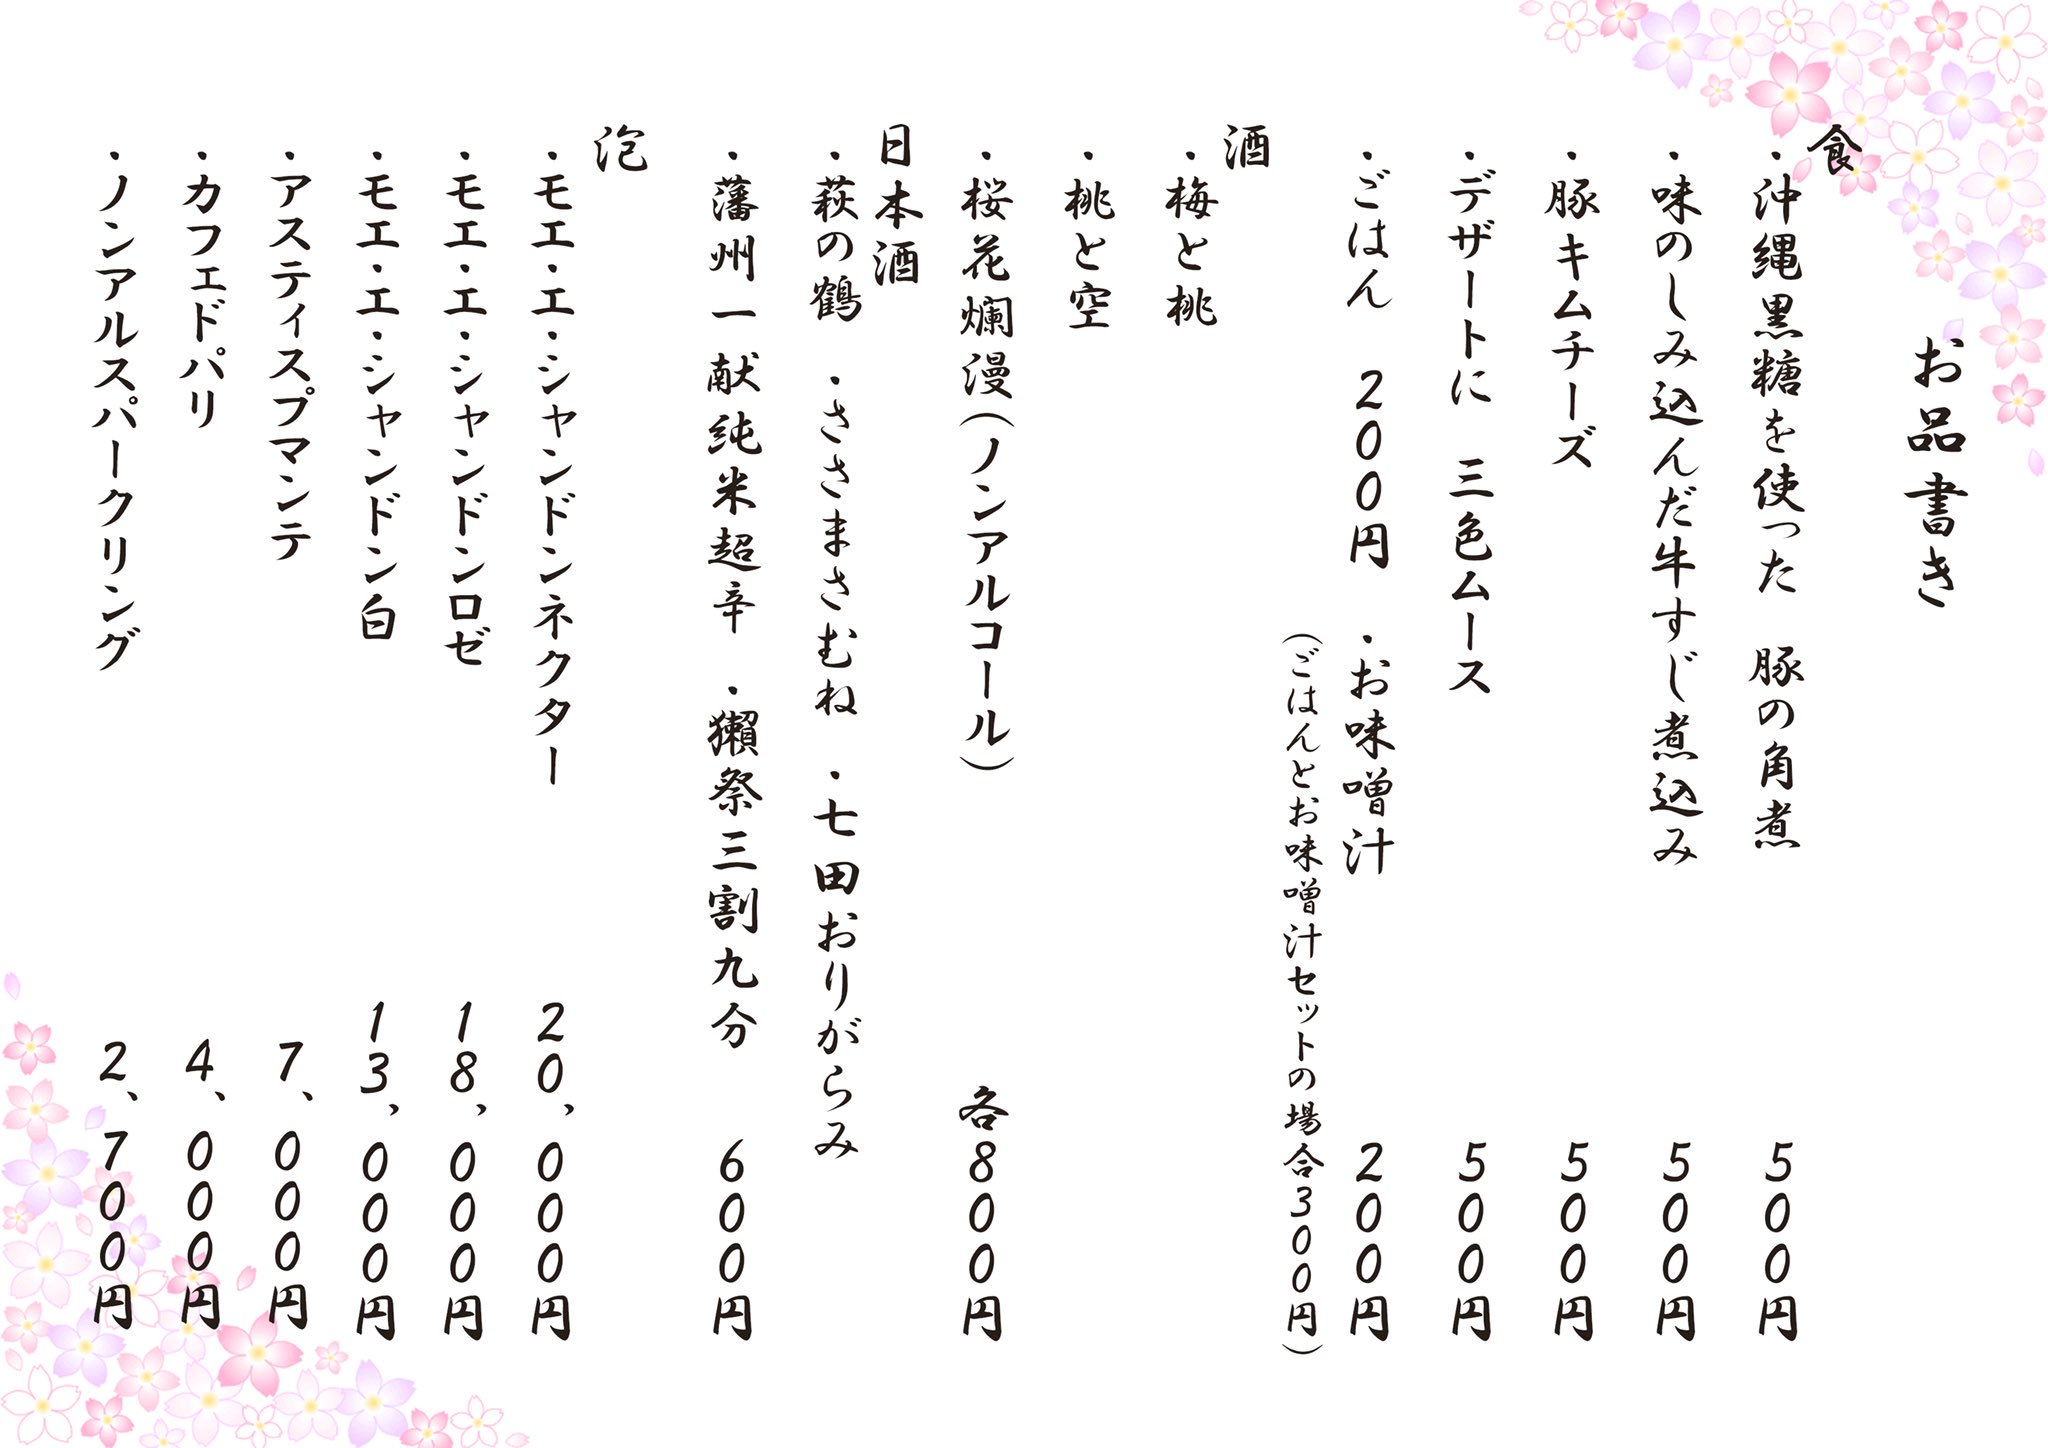 お品書き
食
・沖縄黒糖を使った 豚の角煮 500円
・味のしみ込んだ牛すじ煮込み 500円
・豚キムチーズ 500円
・デザートに 三色ムース 500円
・ごはん 200円 ・お味噌汁 200円
（ごはんとお味噌汁セットの場合300円）
酒
・梅と桃
・桃と空
・桜花爛漫（ノンアルコール） 各800円
日本酒
・萩の鶴 ・ささまさむね ・七田おりがらみ
・藩州一献純米超辛 ・獺祭三割九分 600円
泡
・モエ・エ・シャンドンネクター 20,000円
・モエ・エ・シャンドンロゼ 18,000円
・モエ・エ・シャンドン白 13,000円
・アスティスプマンテ 7、000円
・カフェドパリ 4、000円
・ノンアルスパークリング 2、700円